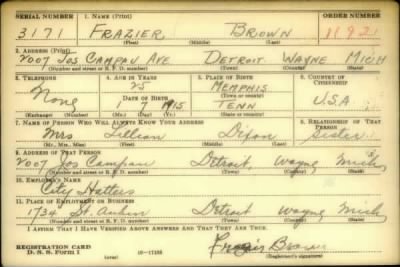 SERIAL NUMBER 1. NAME (Print) ORDER NUMBER
3171 FRAZIER, BROWN 11921
(First) (Middle) (Last)
2. ADDRESS (Print)
2007 JOS CAMPAU AVE DETROIT WAYNE MICH
(Number and street or R. F. D. number) (Town) (County) (State)
3. TELEPHONE 4. AGE IN YEARS 5. PLACE OF BIRTH 6. COUNTRY OF CITIZENSHIP
None 25 MEMPHIS
DATE OF BIRTH (Town or county)
1 1915 TENN U.S.A
(Exchange) (Number) (Mo.) (Day) (Yr.) (State or country)
7. NAME OF PERSON WHO WILL ALWAYS KNOW YOUR ADDRESS 8. RELATIONSHIP OF THAT PERSON
Mrs Lillian Dixon Sister
(Mr., Mrs., Miss) (First) (Middle) (Last)
9. ADDRESS OF THAT PERSON
2007 Jos Campau Detroit, Wayne Mich
(Number and street or R. F. D. number) (Town) (County) (State)
10. EMPLOYER'S NAME
City Hatters
11. PLACE OF EMPLOYMENT OR BUSINESS
1734 St. Aubin Detroit Wayne Mich
(Number and street or R. F. D. number) (Town) (County) (State)
I AFFIRM THAT I HAVE VERIFIED ABOVE ANSWERS AND THAT THEY ARE TRUE.
REGISTRATION CARD
D. S. S. FORM 1 (over) 16—17105 Frazier Brown
(Registrant's signature)